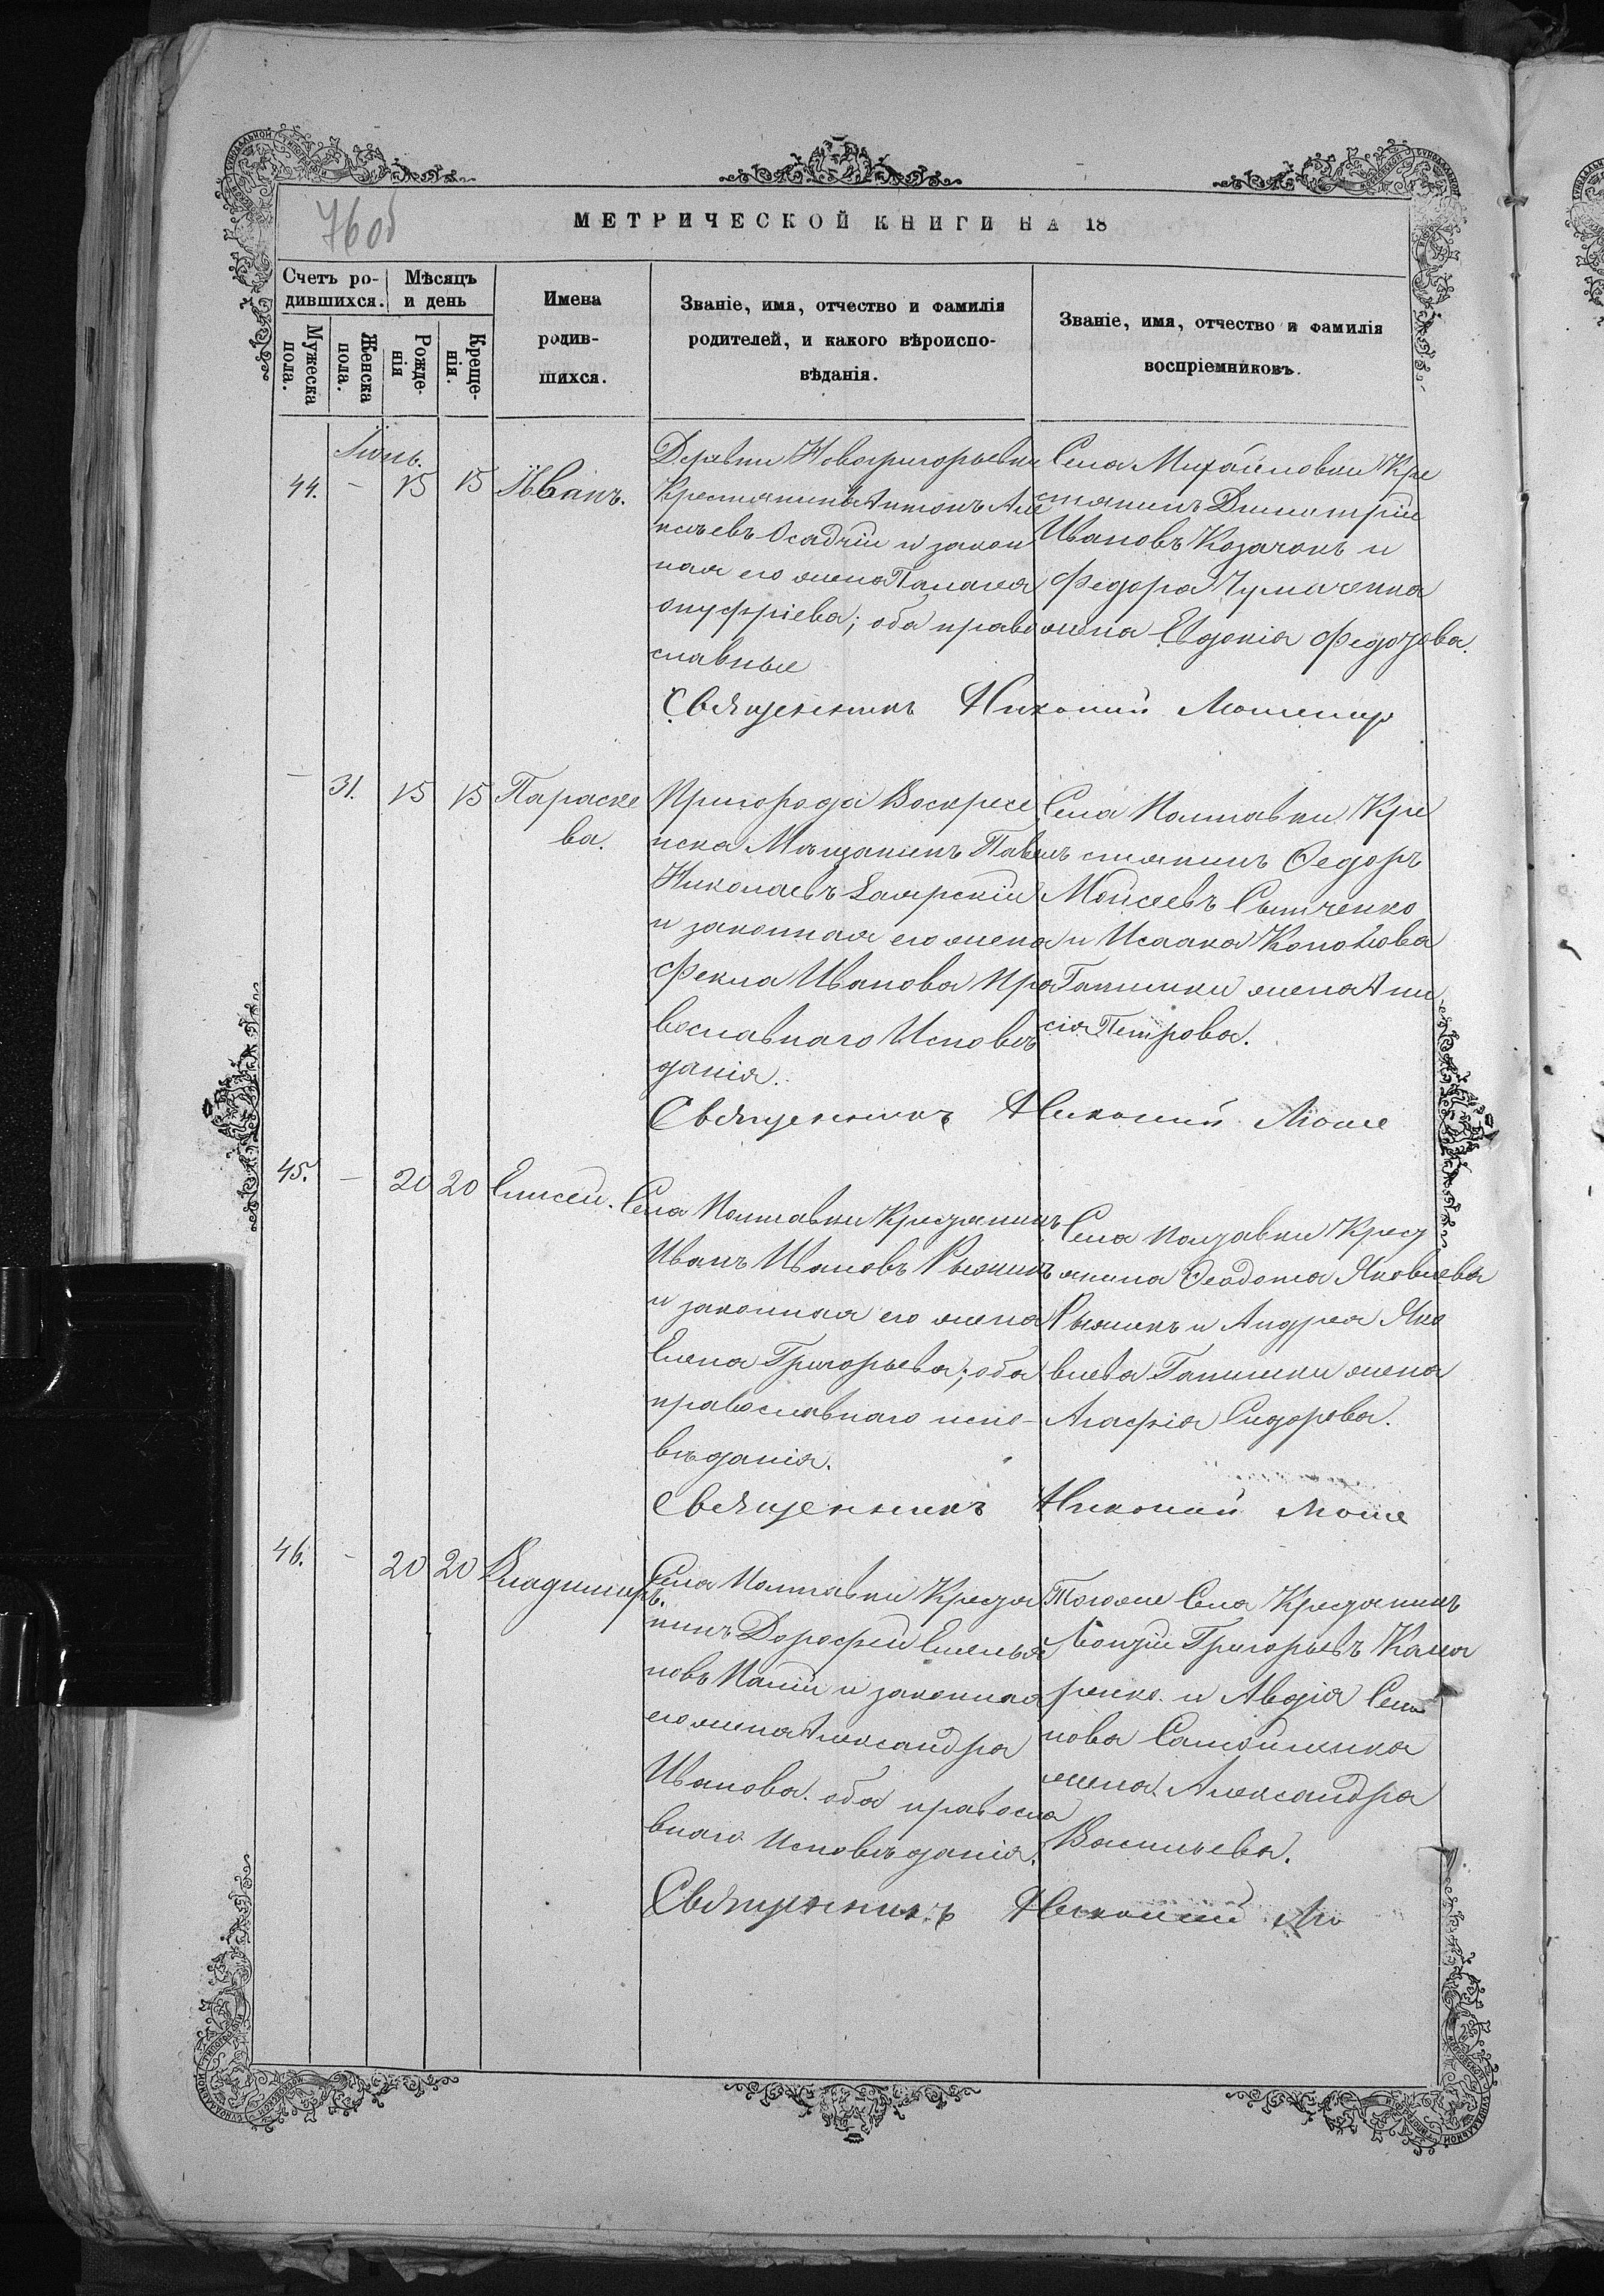 76об
МЕТРИЧЕСКОЙ КНИГИ НА 18
Счетъ родившихся.
Мѣсяцъ и день
Мужеска пола.
Женска пола.
Рожденія
Крещенія.
Имена родившихся.
Званіе, имя, отчество и фамилія
родителей, и какого вѣроиспо-
вѣданія.
Званіе, имя, отчество и фамилія
воспріемниковъ.
Іюнь.
44. - 15 15 Иванъ.
Деревни Новогригорьевки
Крестьянинъ Антонъ Але
ксѣевъ Осадчій и закон
ная его жена Палагея
Онуфріева; оба право
славные
Села Михайловки Кре
стьянинъ Димитрій
Ивановъ Козачокъ и
Федора Чумаченка
жена Евдокія Федорова.
Священникъ Никоній
- 31. 15 15 Параске
ва.
Пригорода Воскресе
нска Мѣщанинъ Павелъ
Николаевъ
и законная его жена
Фекла Иванова пра
вославнаго Исповѣ
данія.
Села Полтавки Кре
стьянинъ Ѳедоръ
Мойсеевъ
и Исаака
жена Ани
сія Петрова.
Священникъ Никоній
45. - 20 20 Елисей.
Села Полтавки Крестянинъ
Иванъ Ивановъ Рыжикъ
и законная его жена
Елена Григорьева; оба
православнаго испо-
вѣданія.
Села Полтавки Крест
янина Ѳеодота Яковлева
Рыжикъ и Андрея Яко
влева жена
Агафія Сидорова.
Священникъ Никоній
46. - 20 20 Владимиръ.
Села Полтавки Крестя
нинъ Дорофей Емелья
новъ Палій и законная
его жена Александра
Иванова. оба правосла
внаго Исповѣданія.
Тогоже Села Крестянинъ
Григорьевъ
и Авдія Семе
нова Самойленка
жена Александра
Васильева.
Священникъ Никоній